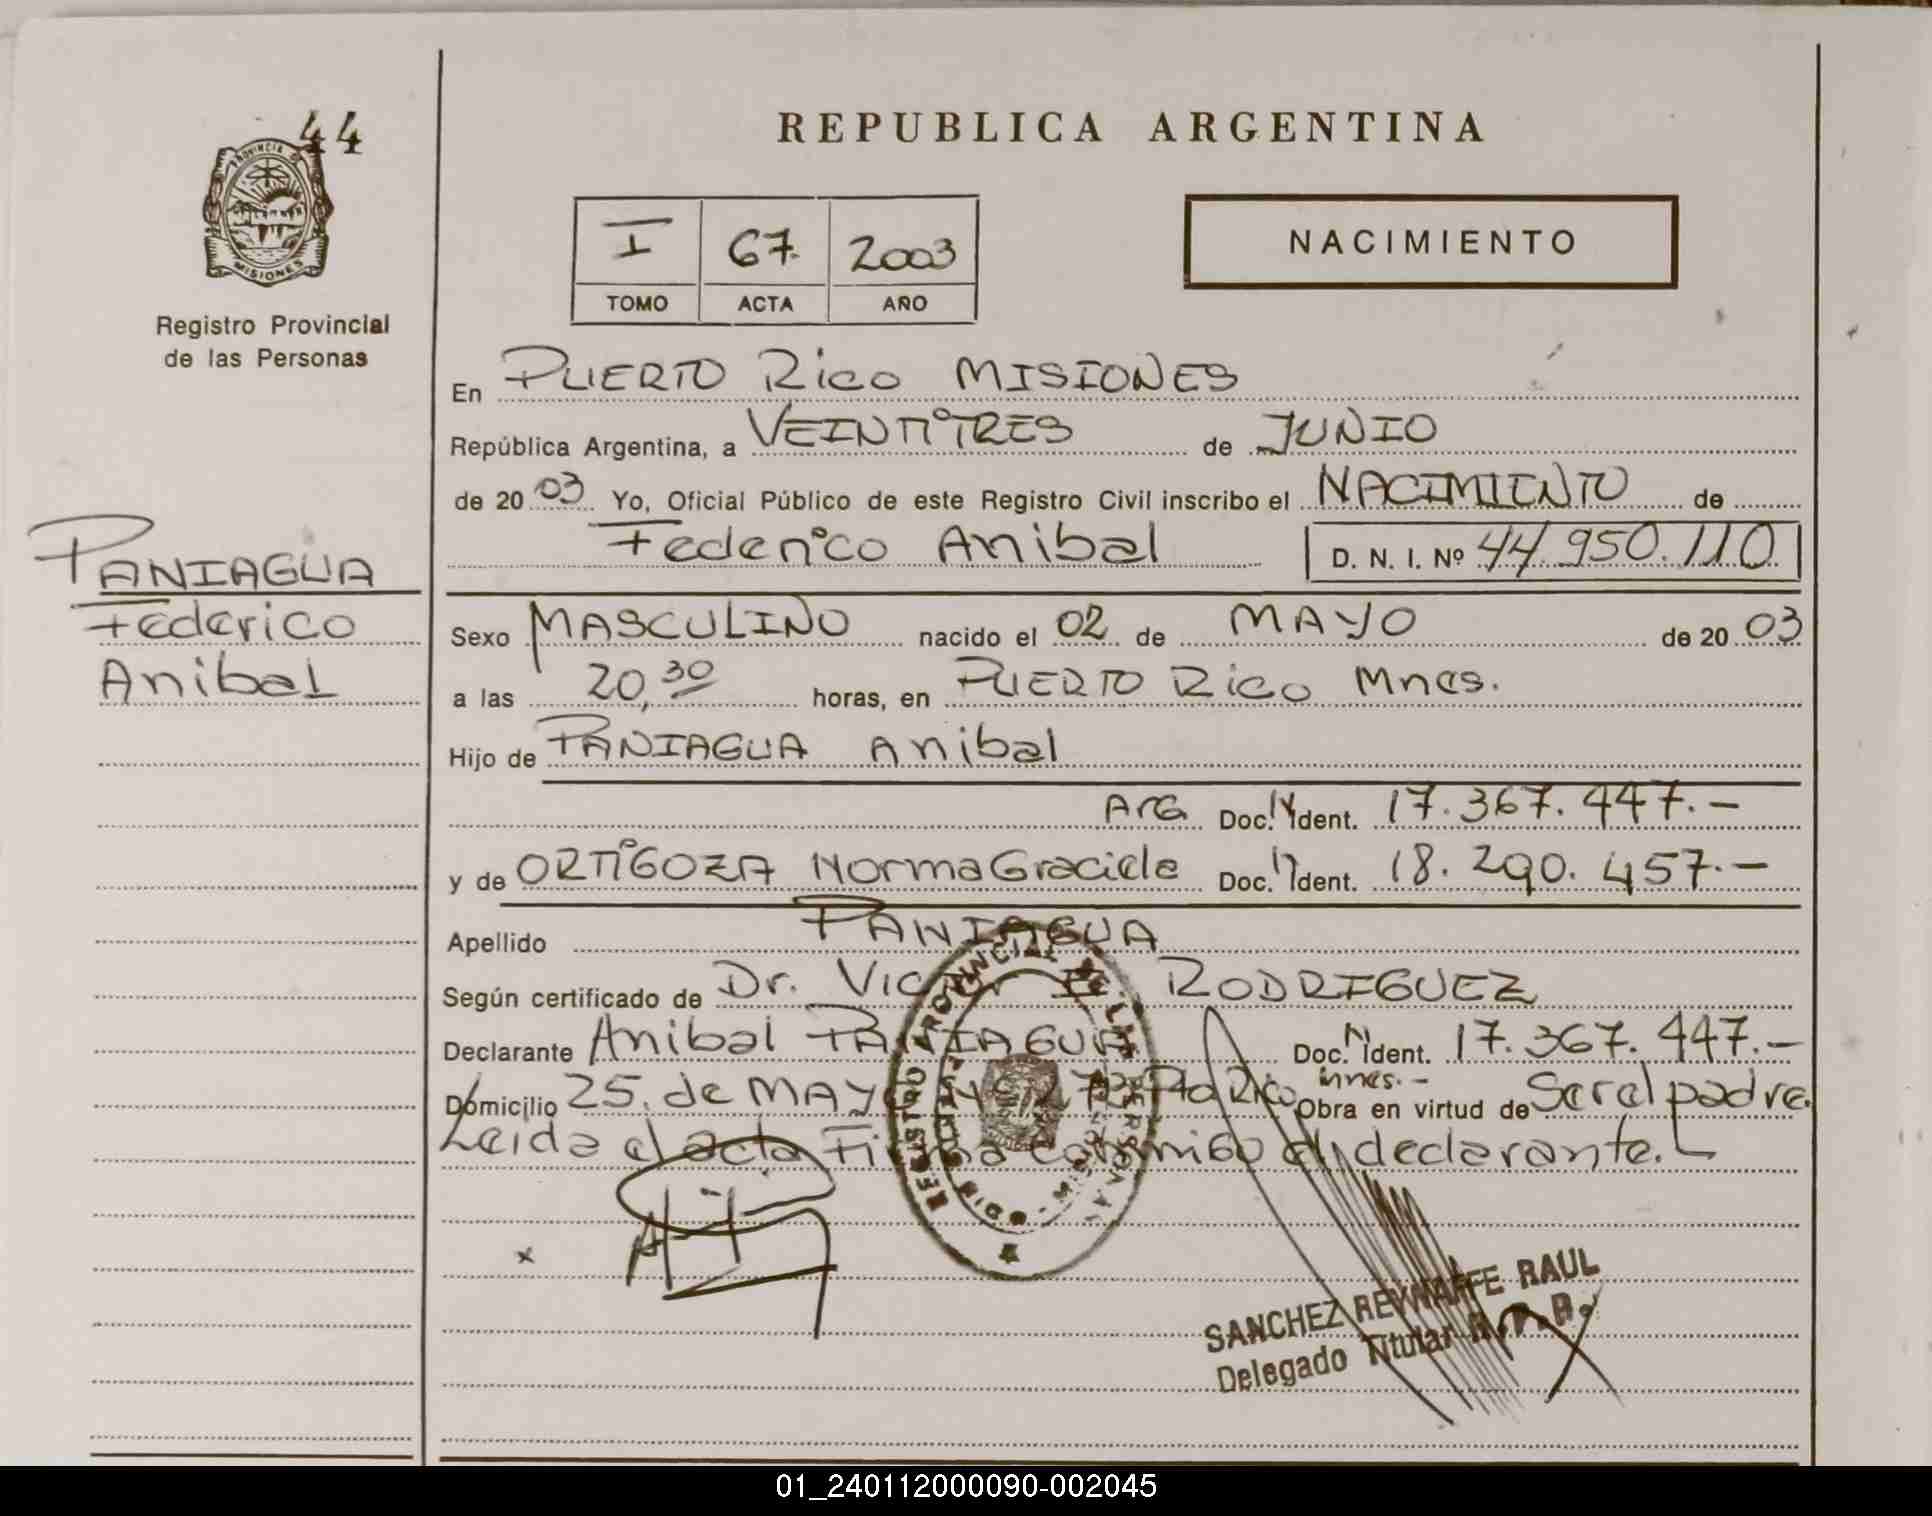 44
PROVINCIA DE
MISIONES
Registro Provincial
de las Personas
PANIAGUA
Federico
Anibal
REPUBLICA ARGENTINA
I 67. 2003
TOMO ACTA AÑO
NACIMIENTO
En PUERTO Rico MISIONES
República Argentina, a VEINTITRES de JUNIO
de 20 03 Yo, Oficial Público de este Registro Civil inscribo el NACIMIENTO de
Federico Anibal D. N. I. Nº 44.950.110
Sexo MASCULINO nacido el 02 de MAYO de 20 03
a las 20,30 horas, en PUERTO Rico Mnes.
Hijo de PANIAGUA Anibal
ArG. Doc. Ident. 17.367.447.-
y de ORTIGOZA Norma Graciela Doc. Ident. 18.290.457.-
Apellido PANIAGUA
Según certificado de Dr. RODRIGUEZ
Declarante Anibal PANIAGUA Doc. Ident. 17.367.447.-
Domicilio 25 de MAYO Pto Rico mnes.- Obra en virtud de Ser el padre.
Leida el acta Firma conmigo el declarante.
REGISTRO PROVINCIAL DE LAS PERSONAS
SANCHEZ RAUL
Delegado Titular R.P.P.
01_240112000090-002045